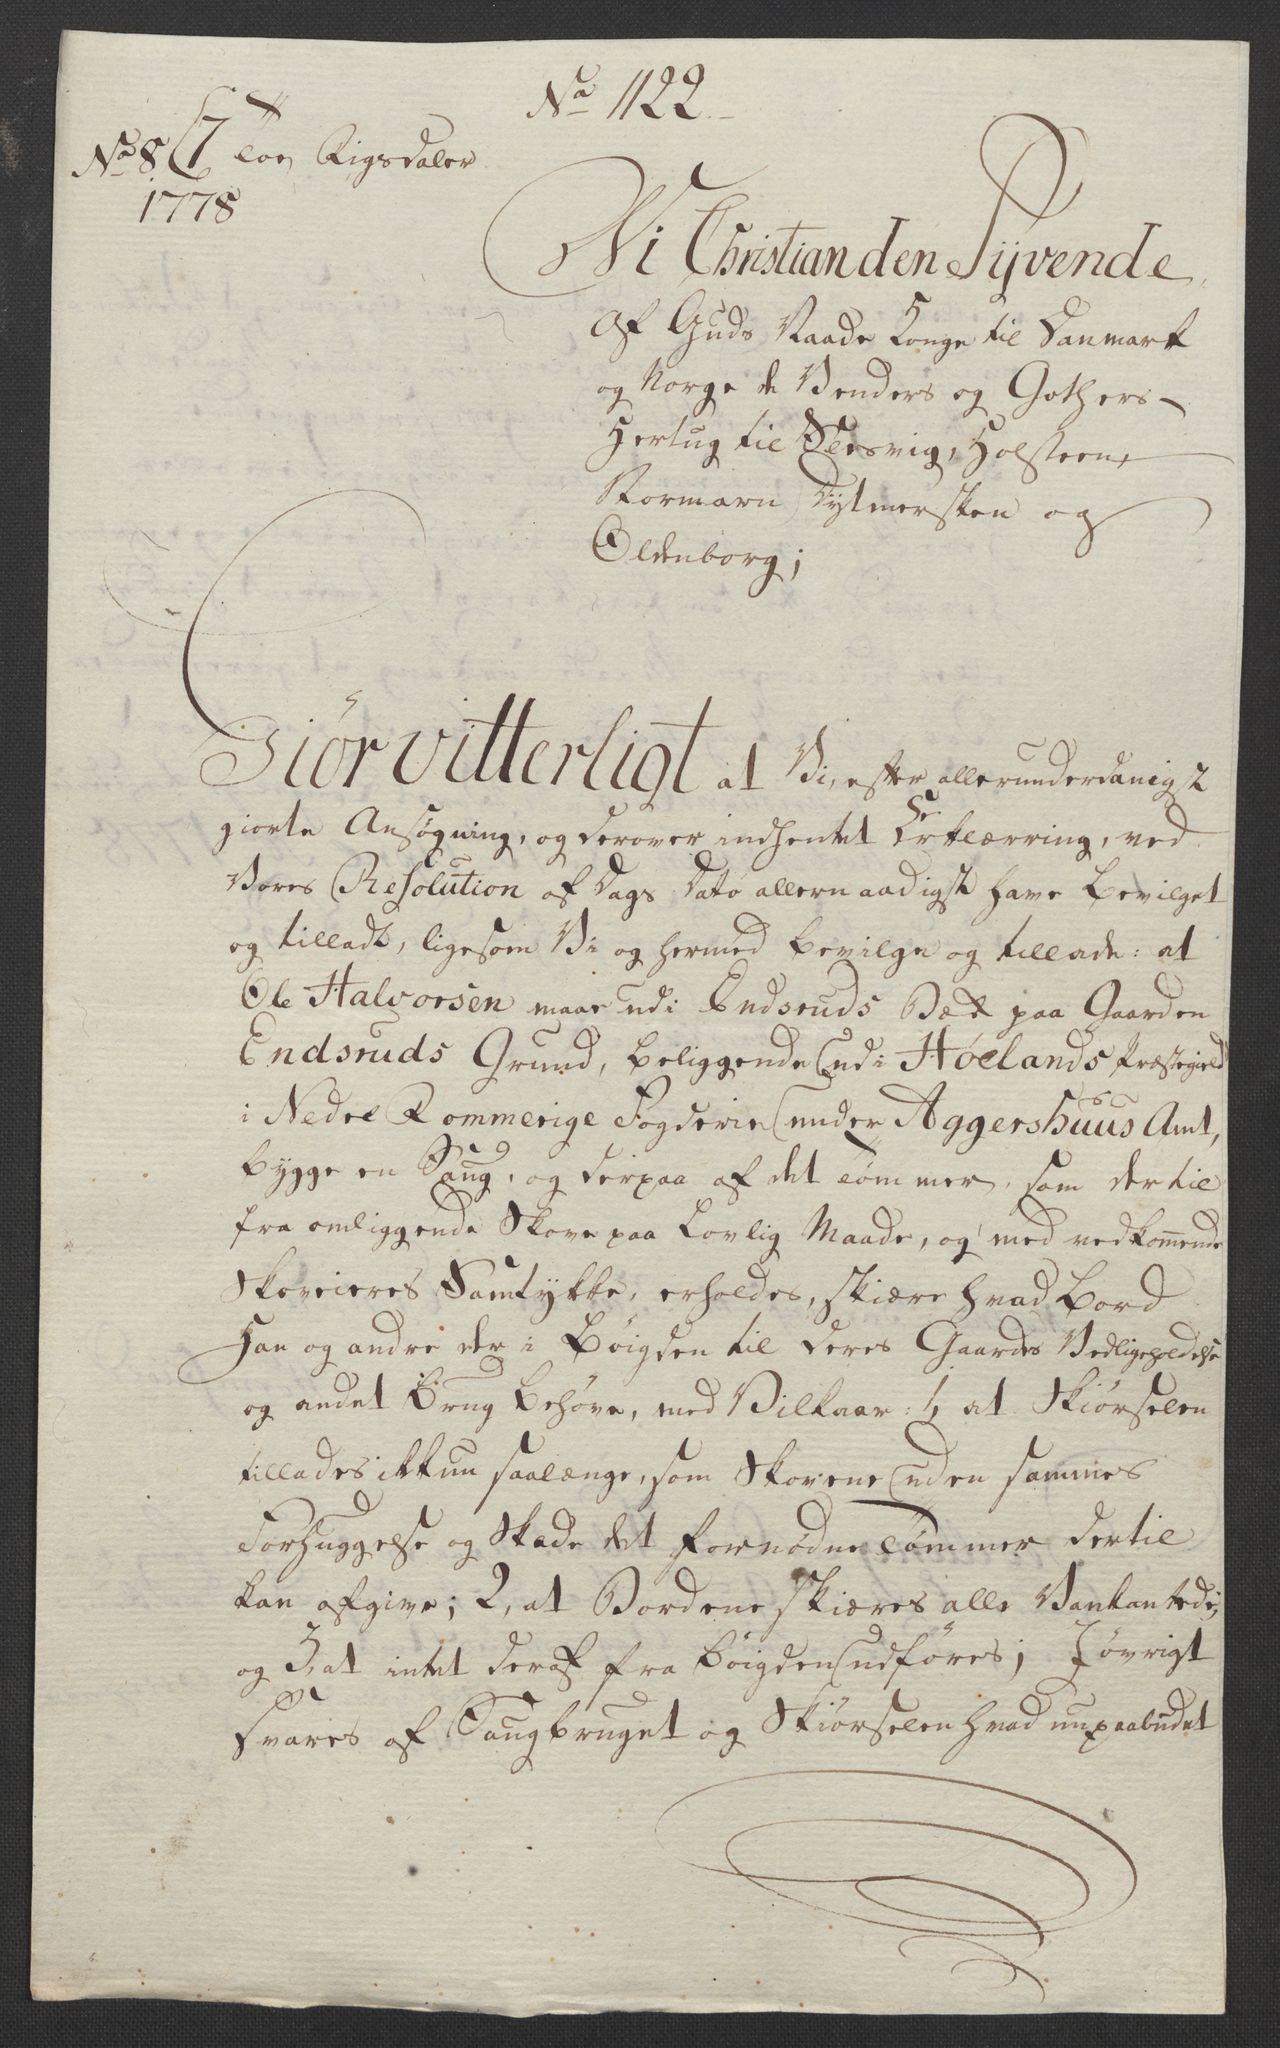 No 1122
No 8 Toe Rigsdaler
1778
Vi Christian den Syvende,
Af Guds Naade Konge til Danmark
og Norge de Venders og Gothers
Hertug til Slesvig, Holsteen,
Stormarn Dytmersken og
Oldenborg;
Giör vitterligt at Vi, efter allerunderdanigst
giorte Ansøgning, og derover indhentet Erklærring, ved
Vores Resolution af Dags Dato allernaadigst have bevilget
og tilladt, ligesom Vi og hermed bevilge og tillade: at
Ole Halvorsen maae udi Endsruds Bæk paa Gaarden
Endsruds Grund, beliggende udi Høelands Præstegield
i Nedre Rommerige Fogderie under Aggershuus Amt,
bygge en Saug, og derpaa af det Tømmer, som dertil
fra omliggende Skove paa Lovlig Maade, og med vedkom̄ende
Skoveieres Samtykke, erholdes, skiære hvad Bord
Han og andre der i Bøigden til deres Gaardes Vedligeholdelse
og andet Brug behøve, med Vilkaar: 1, at Skiørselen
tillades ikkun saalænge, som Skovene uden sammes
Forhuggelse og Skade det fornødne Tømmer dertil
kan afgive; 2, at Bordene skiæres alle Vankantede;
og 3, at intet deraf fra Bøigden udføres; I øvrigt
svares af Saugbruget og Skiørselen hvad nu paabudet